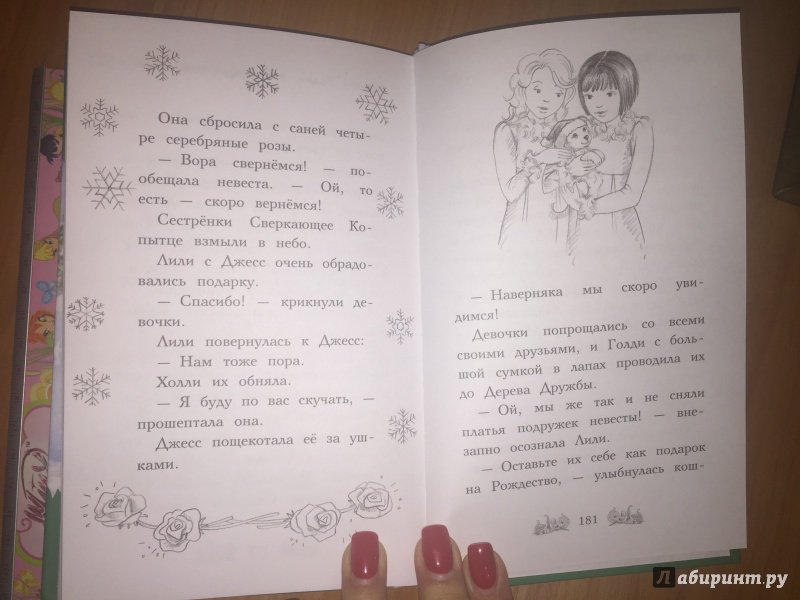 Она сбросила с саней четы-
ре серебряные розы.
— Вора свернёмся! — по-
обещала невеста. — Ой, то
есть — скоро вернёмся!
Сестрёнки Сверкающее Ко-
пытце взмыли в небо.
Лили с Джесс очень обрадо-
вались подарку.
— Спасибо! — крикнули де-
вочки.
Лили повернулась к Джесс:
— Нам тоже пора.
Холли их обняла.
— Я буду по вас скучать, —
прошептала она.
Джесс пощекотала её за уш-
ками.
— Наверняка мы скоро уви-
димся!
Девочки попрощались со всеми
своими друзьями, и Голди с боль-
шой сумкой в лапах проводила их
до Дерева Дружбы.
— Ой, мы же так и не сняли
платья подружек невесты! — вне-
запно осознала Лили.
— Оставьте их себе как подарок
на Рождество, — улыбнулась кош-
181
Лабиринт.ру